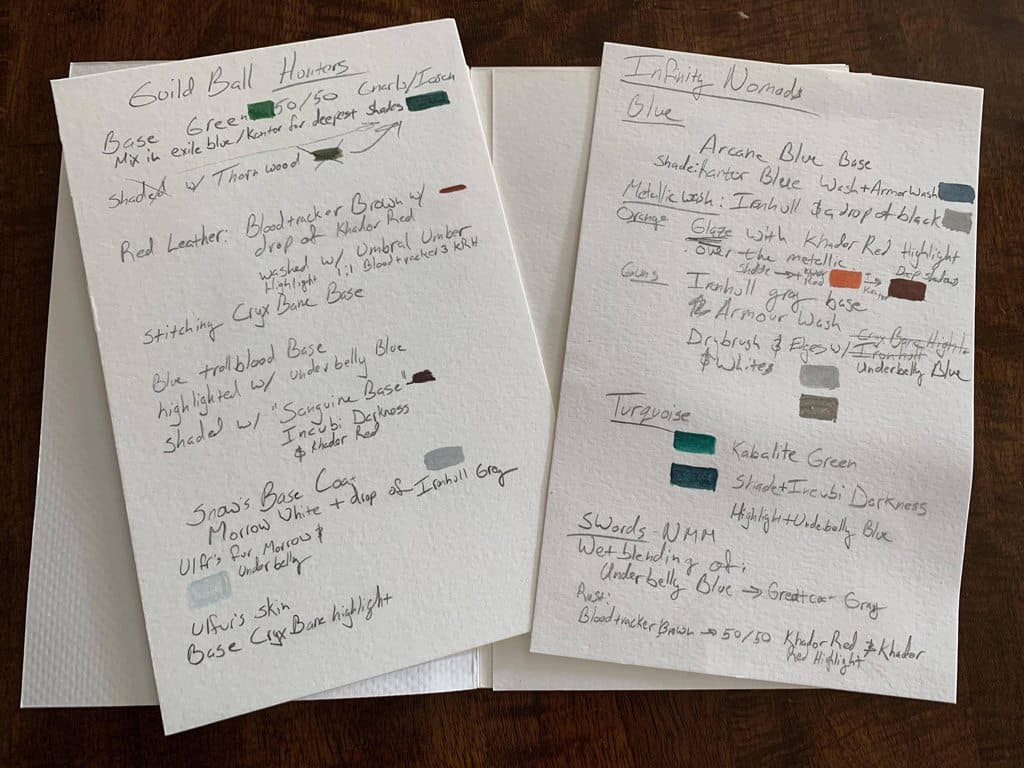 Guild Ball Hunters
Base Green 50/50 Gnarls/Iosan
Mix in exile blue/Kantor for deepest shades
Shaded w/ Thornwood
Red Leather: Bloodtracker Brown w/
drop of Khador Red
washed w/ Umbral Umber
Highlight 1:1 Bloodtracker & KRH
Stitching Cryx Bane Base
Blue trollblood Base
highlighted w/ underbelly Blue
shaded w/ "Sanguine Base"
Incubi Darkness
& Khador Red
Snow's Base Coat
Morrow White + drop of Ironhull Grey
Ulfr's fur Morrow &
Underbelly
Ulfur's skin
Base Cryx Bane highlight
Infinity Nomads
Blue
Arcane Blue Base
Shade: Kantor Blue Wash + Armor Wash
Metallic wash: Ironhull & a drop of black
Orange Glaze with Khador Red Highlight
over the metallic
Shade → Khador Red → Kantor Deep shadows
Guns Ironhull grey base
Armour Wash Cryx Bane Highlt
Drybrush & Edges w/ Ironhull
& Whites Underbelly Blue
Turquoise
Kabalite Green
Shade + Incubi Darkness
Highlight + Underbelly Blue
Swords - NMM
Wet blending of:
Underbelly Blue → Greatcoat Gray
Rust:
Bloodtracker Brown → 50/50 Khador Red & Khador
Red Highlight